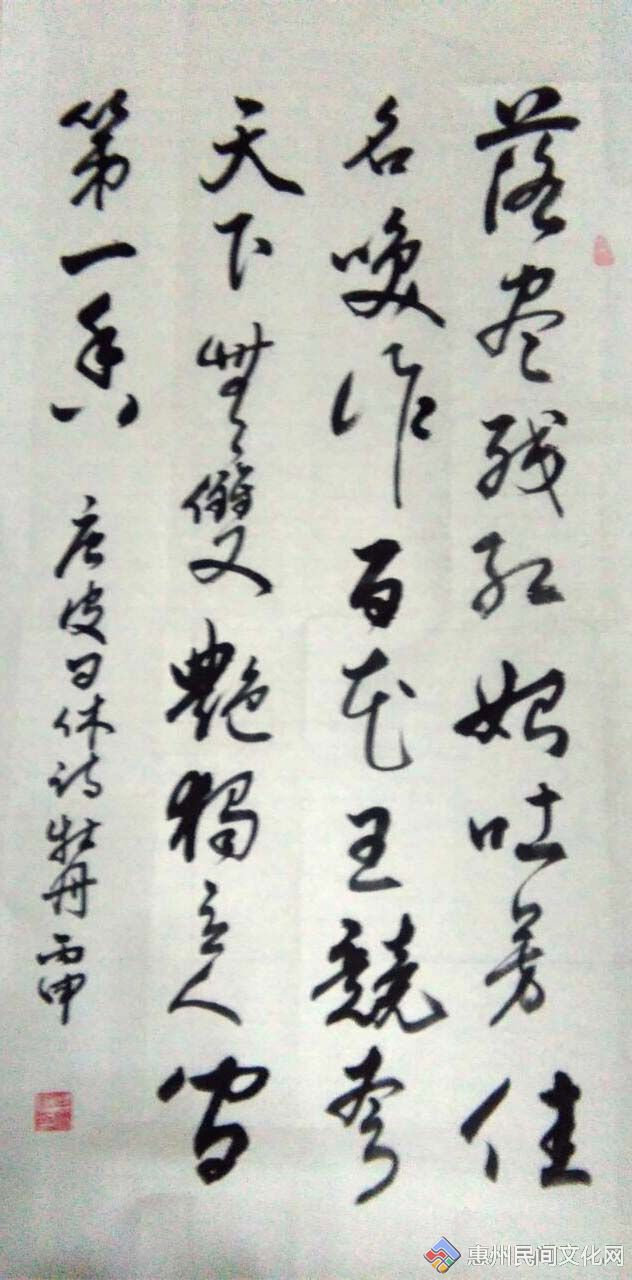 落尽残红始吐芳佳
名唤作百花王競夸
天下無雙艶獨立人间
第一香
唐皮日休诗牡丹丙申
惠州民间文化网